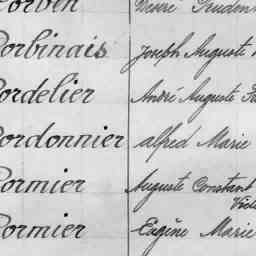 Corbin Désiré Pruden
Corbinais Joseph Auguste
Cordelier André Auguste
Cordonnier alfred Marie
Cormier Auguste Constant
Cormier Eugène Marie